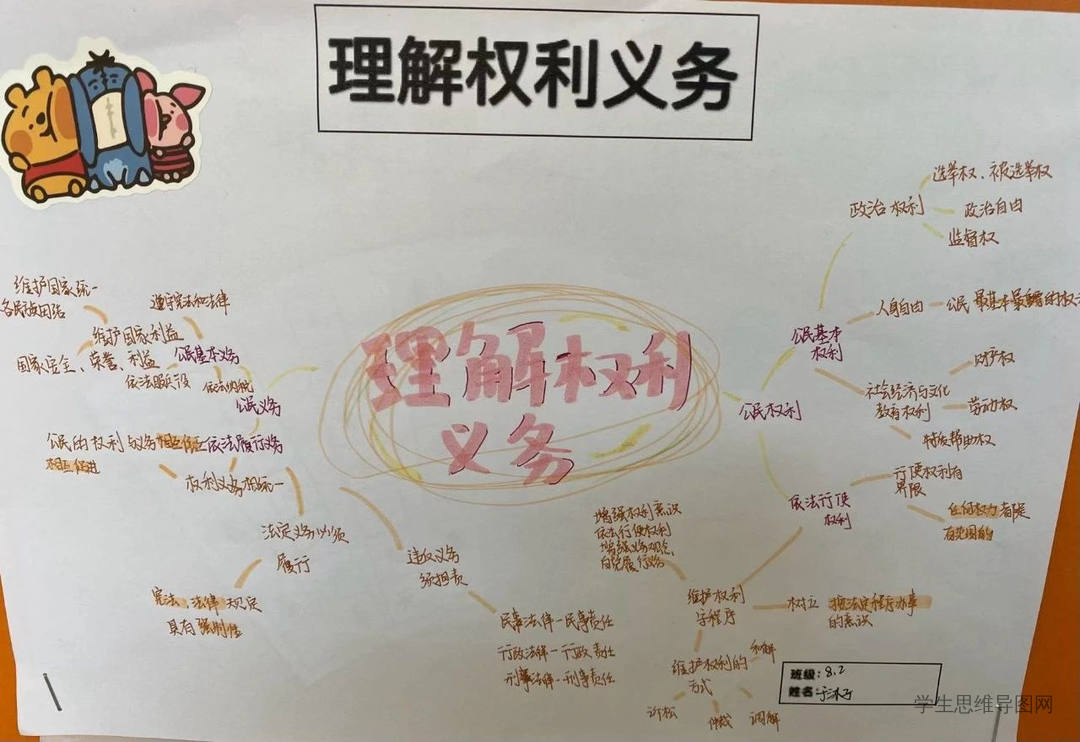 理解权利义务
理解权利
义务
公民权利
公民基本
权利
政治权利
选举权、被选举权
政治自由
监督权
人身自由
公民最基本最重要的权利
社会经济与文化
教育权利
财产权
劳动权
物质帮助权
依法行使
权利
行使权利有
界限
任何权力有限
有范围的
维护权利
守程序
树立 按法定程序办事
的意识
增强权利意识
依法行使权利
增强义务观念
自觉履行义务
维护权利的
方式
和解
调解
仲裁
诉讼
公民义务
公民基本义务
遵守宪法和法律
维护国家利益
维护国家统一
各民族团结
国家安全、荣誉、利益
依法服兵役
依法纳税
依法履行义务
公民的权利与义务相互依存
相互促进
权利义务相统一
法定义务必须
履行
宪法、法律规定
具有强制性
违反义务
须担责
民事法律-民事责任
行政法律-行政责任
刑事法律-刑事责任
班级:8.2
姓名:
学生思维导图网